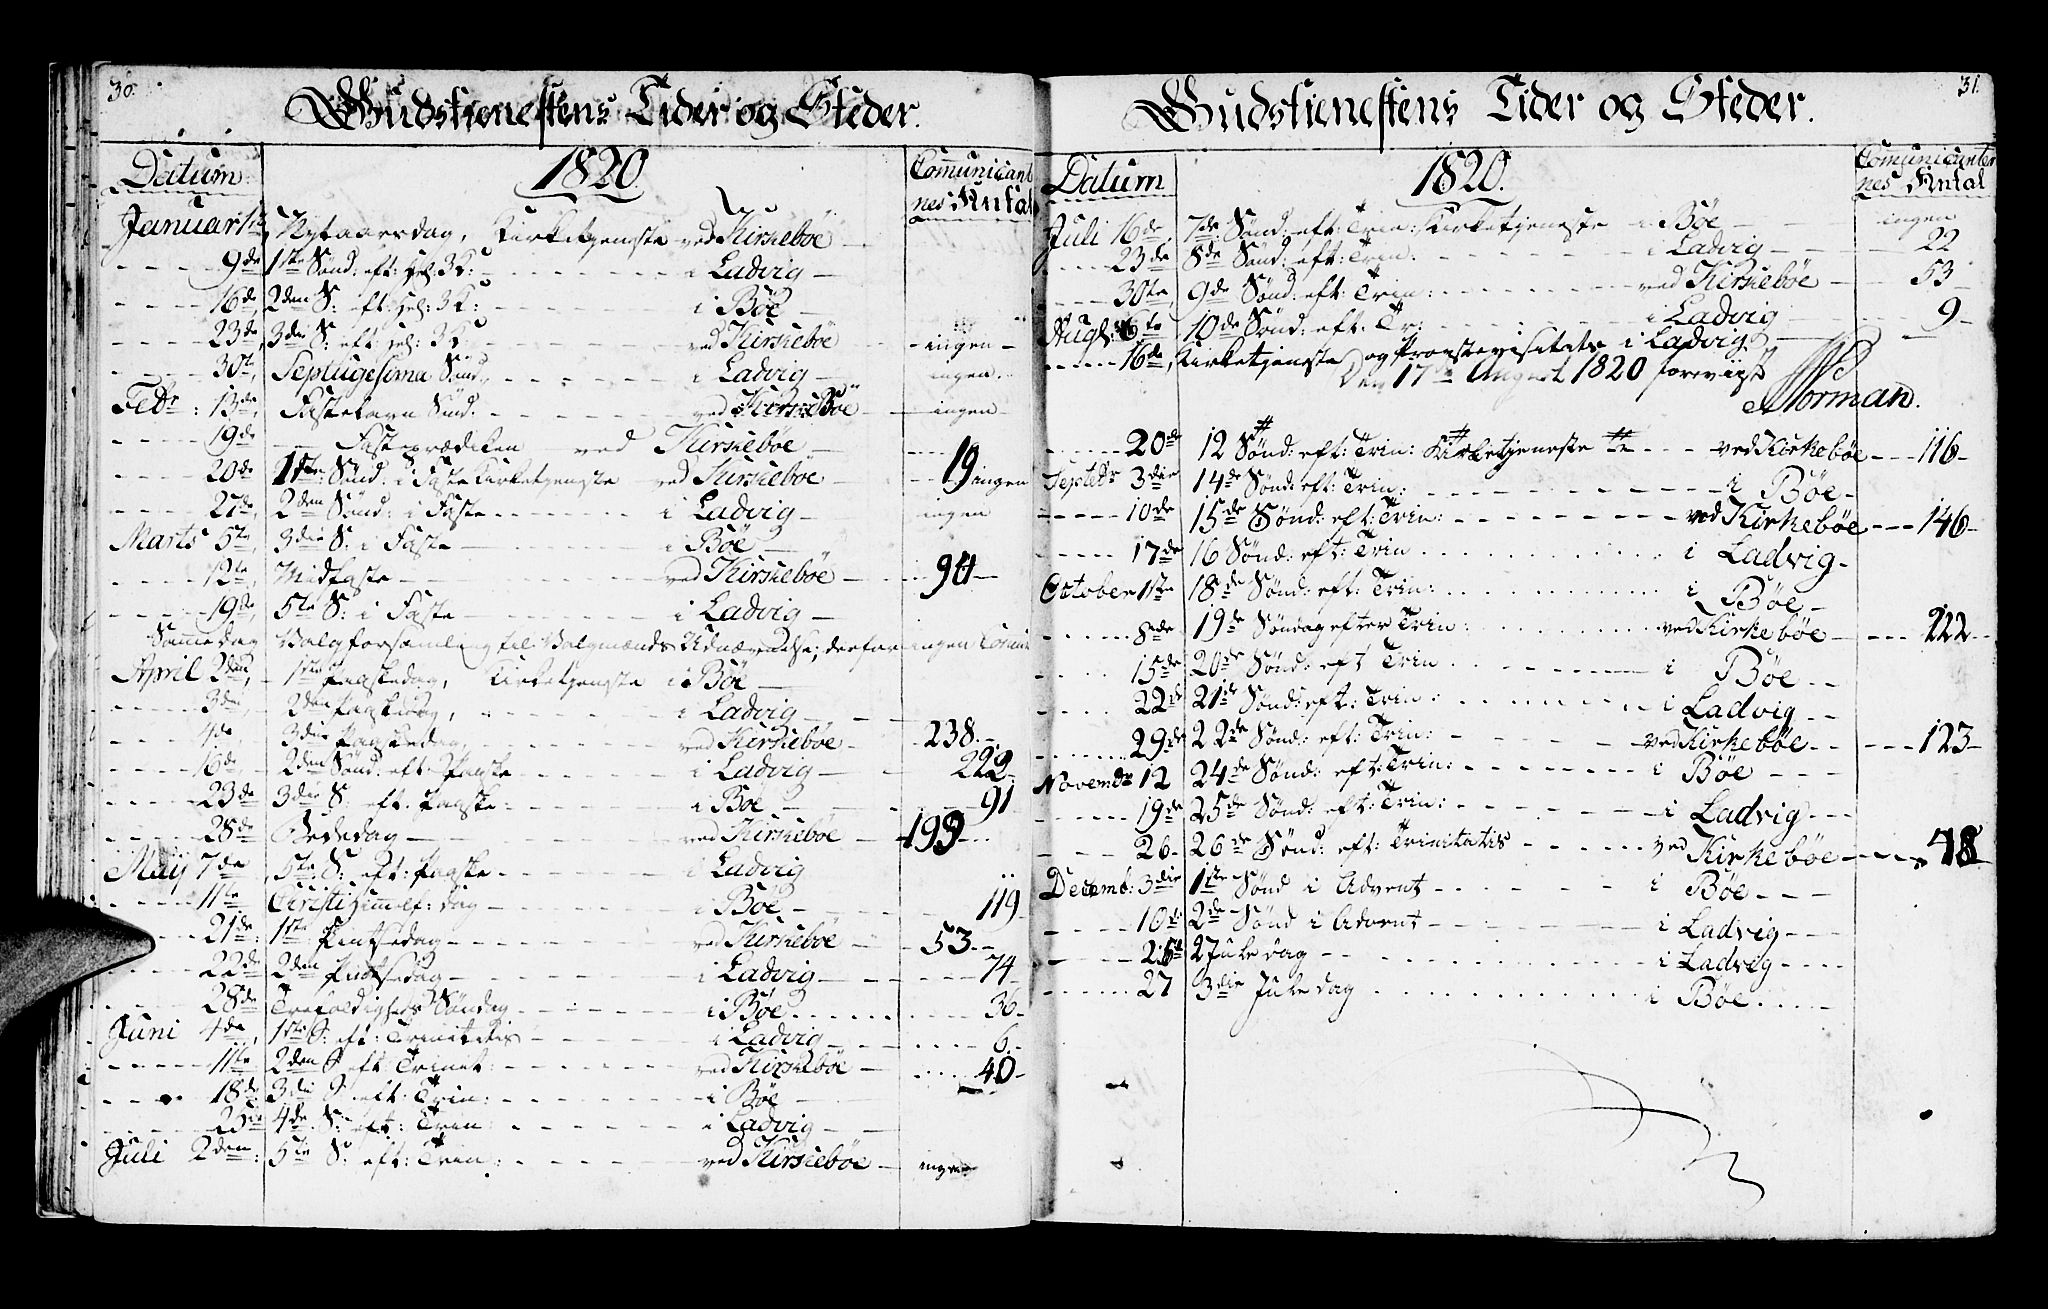 30.
Gudstienestens Tider og Steder.
Datum. 1820. Comunicant
nes Antal
Januar 1te, Nytaarsdag, Kirketjeneste ved Kirkebøe
9de 1ste Sønd: eft: Hel: 3K: i Ladvig
16de, 2den S: eft Hel: 3K: i Bøe
23de, 3die S: eft Hel: 3K: ved Kirkebøe ingen
30te, Septugesima Sønd, i Ladvig ingen.
Febr: 13de, Fastelavn Sønd. ved KirkeBöe ingen
19de Fasteprædiken ved Kirkebøe
20de 1ste Sønd: i Faste Kirketjeneste ved Kirkebøe 19 ingen
27de, 2den Sønd: i Faste i Ladvig ingen
Marts 5te, 3die S: i Faste i Bøe
12te, Midfaste ved Kirkebøe 94
19de, 5te S: i Faste i Ladvig
Samme dag Valgforsamling til Valgmænds Udnævnelse; derfor ingen Comun
April 2den, 1ste Paaskedag, Kirketjeneste i Bøe
3die, 2den Paaskedag, i Ladvig
4de, 3die Paaskedag, ved Kirkebøe 238.
16de, 2den Sønd: eft. Paaske i Ladvig 222
23de 3die S. eft. Paaske i Bøe 91
28de Bededag ved Kirkebøe 199
Maij 7de 5te S: eft: Paaske i Ladvig
11te Christi Himmelf: dag i Bøe 119
21de 1ste Pintsedag ved Kirkebøe 53
22de 2den Pintsedag i Ladvig 74
28de Trefoldigheds Søndag i Bøe 36
Juni 4de, 1ste S: eft: Trinitatis i Ladvig 6.
11te 2den S eft Trinit: ved Kirkebøe 40
18de 3die S eft: Trin: i Bøe
25de 4de S: eft: Trin: i Ladvig
Juli 2den: 5te S: eft: Trin: ved Kirkebøe ingen
31.
Gudstienestens Tider og Steder.
Datum 1820. Comunicanter
nes Antal
Juli 16de, 7de Sønd: eft: Trin: Kirketjeneste i Bøe ingen
23de, 8de Sønd: eft: Trin: i Ladvig 22
30te, 9de Sønd: eft: Trin: ved Kirkebøe 53
Augs: 6te 10de Sønd: eft: Tr: i Ladvig 9
16de, Kirketjeneste og Proustevisitats i Ladvig.
Den 17de August 1820 forevist
Norman.
20de 12 Sønd: eft: Trin: Kirketjeneste ved Kirkebøe 116
Septebr 3die 14de Sønd: eft: Trin: i Bøe
10de 15de Sønd: eft: Trin: ved Kirkebøe 146
17de 16 Sønd: eft: Trin i Ladvig
October 1ste 18de Sønd: eft: Trin: i Bøe,
8de 19de Søndag efter Trin: ved Kirkebøe 222
15de 20de Sønd: eft Trin i Bøe
22de 21de Sønd: eft: Trin: i Ladvig
29de 22de Sønd: eft: Trin: ved Kirkebøe 123
Novembr 12 24de Sønd: eft: Trin: i Bøe
19de 25de Sønd: eft: Trin: i Ladvig
26 26de Sønd: eft: Trinitatis ved Kirkebøe 48
Decemb: 3die 1ste Sønd i Advent i Bøe
10de 2de Sønd i Advent i Ladvig
Juledag i Ladvig
27 3die Juledag i Bøe